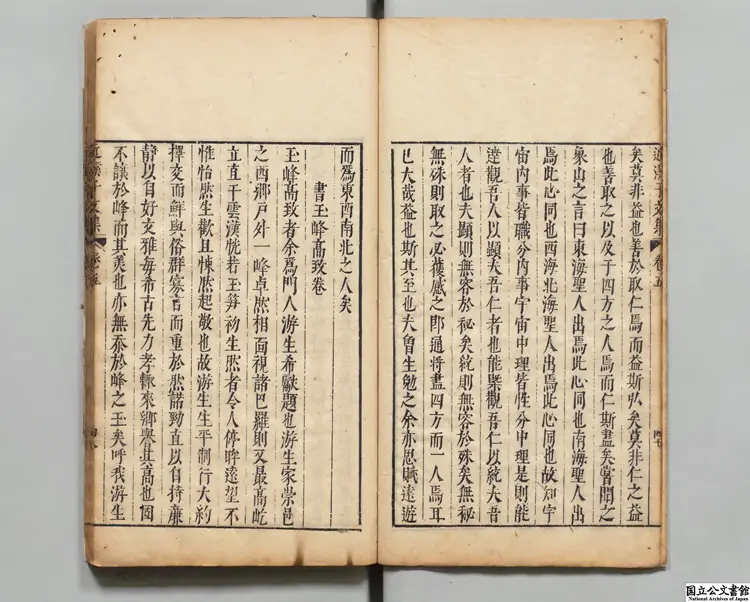 矣莫非益也善於取仁焉而益斯弘矣莫非仁之益
也善取之以及于四方之人焉而仁斯盡矣嘗聞之
象山之言曰東海聖人出焉此心同也南海聖人出
焉此心同也西海北海聖人出焉此心同也故知宇
宙內事皆職分內事宇宙中理皆性分中理是則能
達觀吾人以顯夫吾仁者也能槩觀吾仁以統夫吾
人者也夫顯則無容於秘矣統則無容於殊矣無秘
無殊則取之必獲感之即通將盡四方而一人焉耳
已大哉益也斯其至也夫魯生勉之余亦思賦遠遊
而爲東西南北之人矣
書玉峰髙致卷
玉峰髙致者余爲門人游生希獻題也游生家崇邑
之西鄉戸外一峰卓然相面視諸巴羅則又最髙屹
立直干雲漢恍若玉笋初生然者令人停眸遠望不
惟怡然生歡且悚然起敬也故游生生平制行大約
擇交而鮮與俗群寡言而重於然諾勁直以自持亷
靜以自好支雅每希古先力孝輙來鄉譽其高也固
不讓於峰而其羙也亦無忝於峰之玉矣呼我游生
卷五
四七
四八
国立公文書館
National Archives of Japan